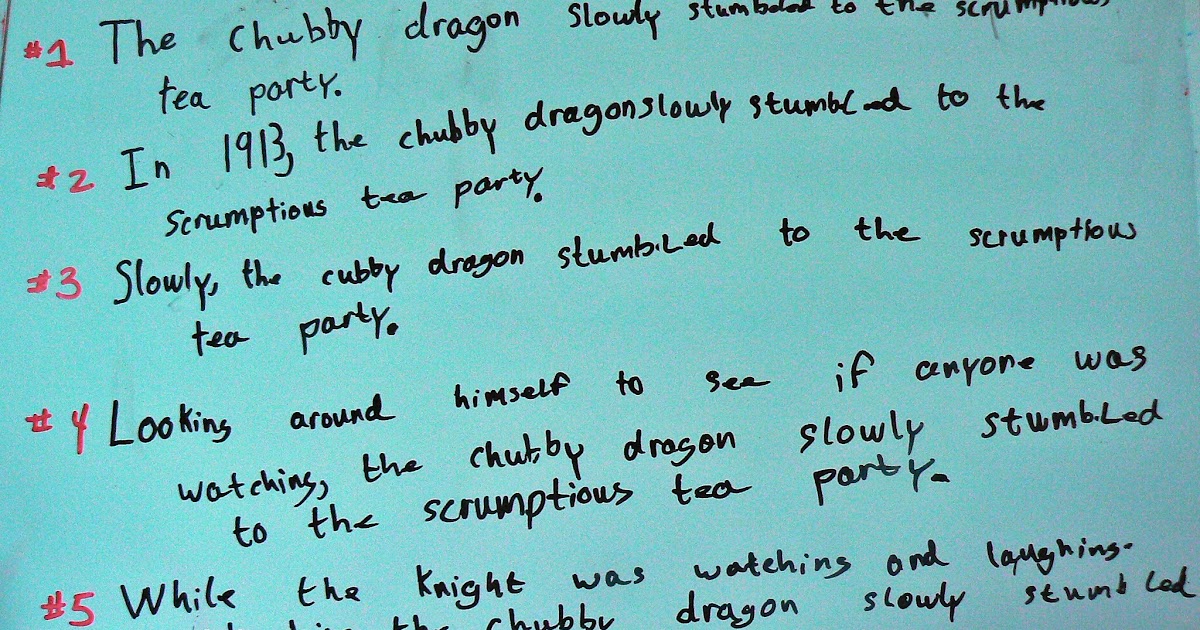 #1 The chubby dragon slowly stumbled to the scrumptious
tea party.
#2 In 1913, the chubby dragon slowly stumbled to the
scrumptious tea party.
#3 Slowly, the cubby dragon stumbled to the scrumptious
tea party.
#4 Looking around himself to see if anyone was
watching, the chubby dragon slowly stumbled
to the scrumptious tea party.
#5 While the Knight was watching and laughing.
the chubby dragon slowly stumbled